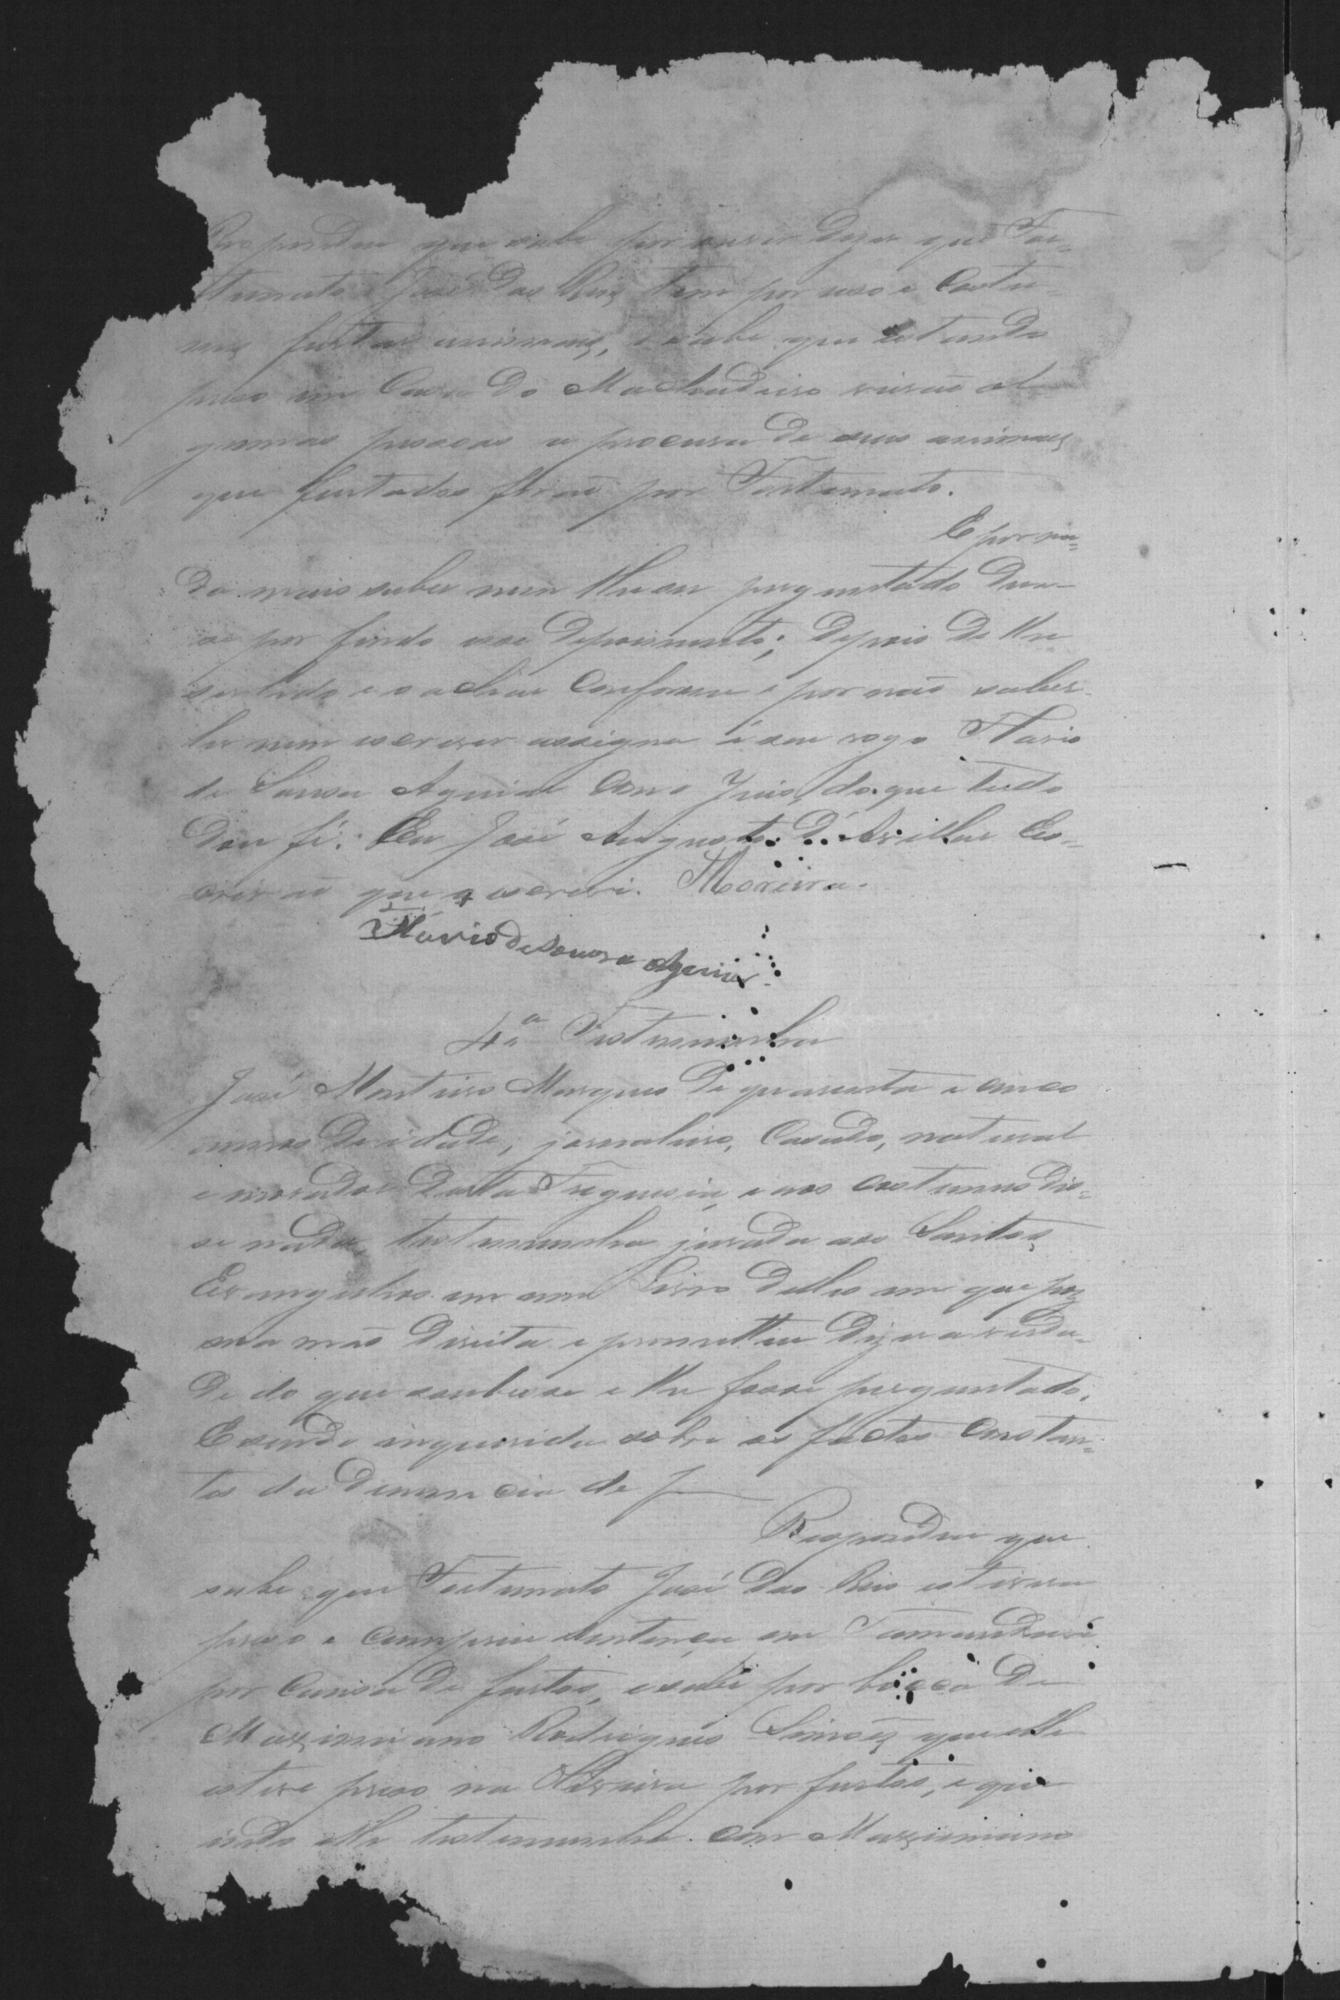 Respondeu que sabe por ouvir dizer que For-
tunato José Das Reis tem por uso e Costu-
mes furtar animaes, e sabe que estando
preso em Casa do Machadeiro virão al
gumas pessoas a procura de seus animaes
que furtados forão por Fortunato.
E por na-
da mais saber nem lhe ser perguntado deu-
se por findo esse depoimento; depois de lhe
ser lido e o achar Conforme e por não saber
ler nem escrever assigna á seu rogo Flavio
de Sousa Aguiar Com o Juis, do que tudo
dou fé. Eu José Augusto d' Avillar Es-
crivão que o escrevi. Moreira.
Flávio de Souza Aguiar
4ª Testemunha
José Monteiro Marques de quarenta e cinco
annos de idade, jornaleiro, Casado, natural
e morador desta Freguesia, e aos Costumes dis-
se nada, testemunha jurada aos Santos
Evangelhos em um Livro delles em que poz
sua mão direita e prometteu dizer a verda-
de do que soubesse e lhe fosse perguntado,
E sendo inquerida sobre os factos Constan-
tes da denuncia de f
Respondeu que
sabe que Fortunato José das Reis estivera
preso e Cumprira Sentença em Tamanduá
por Causa de furtos, e sabe por bocca de
Maximiano Rodrigues Simões que elle
esteve preso na por furtos, e que
indo elle testemunha com Maximiano